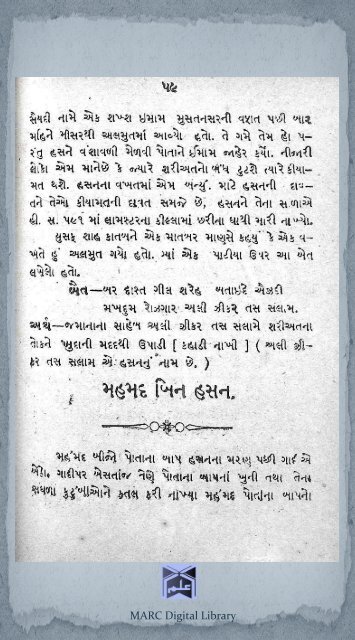 ૫૯
સૈયદી નામે એક શખ્શ ઇમામ મુસતનસરની વફાત પછી બાર
મહિને મીસરથી અલમુતમાં આવ્યો હતો. તે ગમે તેમ હો પ-
રંતુ હસને વંશાવળી મેળવી પોતાને ઈમામ જાહેર કર્યો. નીજારી
લોકો એમ માનેછે કે જ્યારે શરીઅતનો બંધ ટુટશે ત્યારે કીયા-
મત થશે. હસનના વખતમાં એમ બન્યું. માટે હસનની દાવ-
તને તેઓ કીયામતની દાવત સમજે છે, હસનને તેના સાળાએ
હી. સ. ૫૬૧ માં લામસ્ટરના કીલ્લામાં છરીના ઘાથી મારી નાખ્યો.
યુસફ શાહ કાતબને એક માતબર માણસે કહ્યું કે એક વ-
ખતે હું અલમુત ગયો હતો. ત્યાં એક પાટીયા ઉપર આ બેત
લખેલો હતો.
બૈત—બર દાસ્ત ગીલ શરેહ બતાઇદે એઝદી
મખદુમ રોઝગાર અલી ઝીકર તસ સલામ.
અર્થ—જમાનાના સાહેબ અલી ઝીકર તસ સલામે શરીઅતના
તોકને ખુદાની મદદથી ઉપાડી [ ટહાડી નાખી ] ( અલી ઝી-
કર તસ સલામ એ હસનનું નામ છે. )
મહમદ બિન હસન.
મહંમદ બીનને પોતાના બાપ હસનના મરણ પછી ગાદીએ
બેઠો. ગાદીપર બેસતાંજ તેણે પોતાના બાપનાં ખુની તથા તેના
સઘળા કુટુંબીઓને કતલ કરી નાખ્યા મહંમદ પોતાના બાપનો
علم
MARC Digital Library